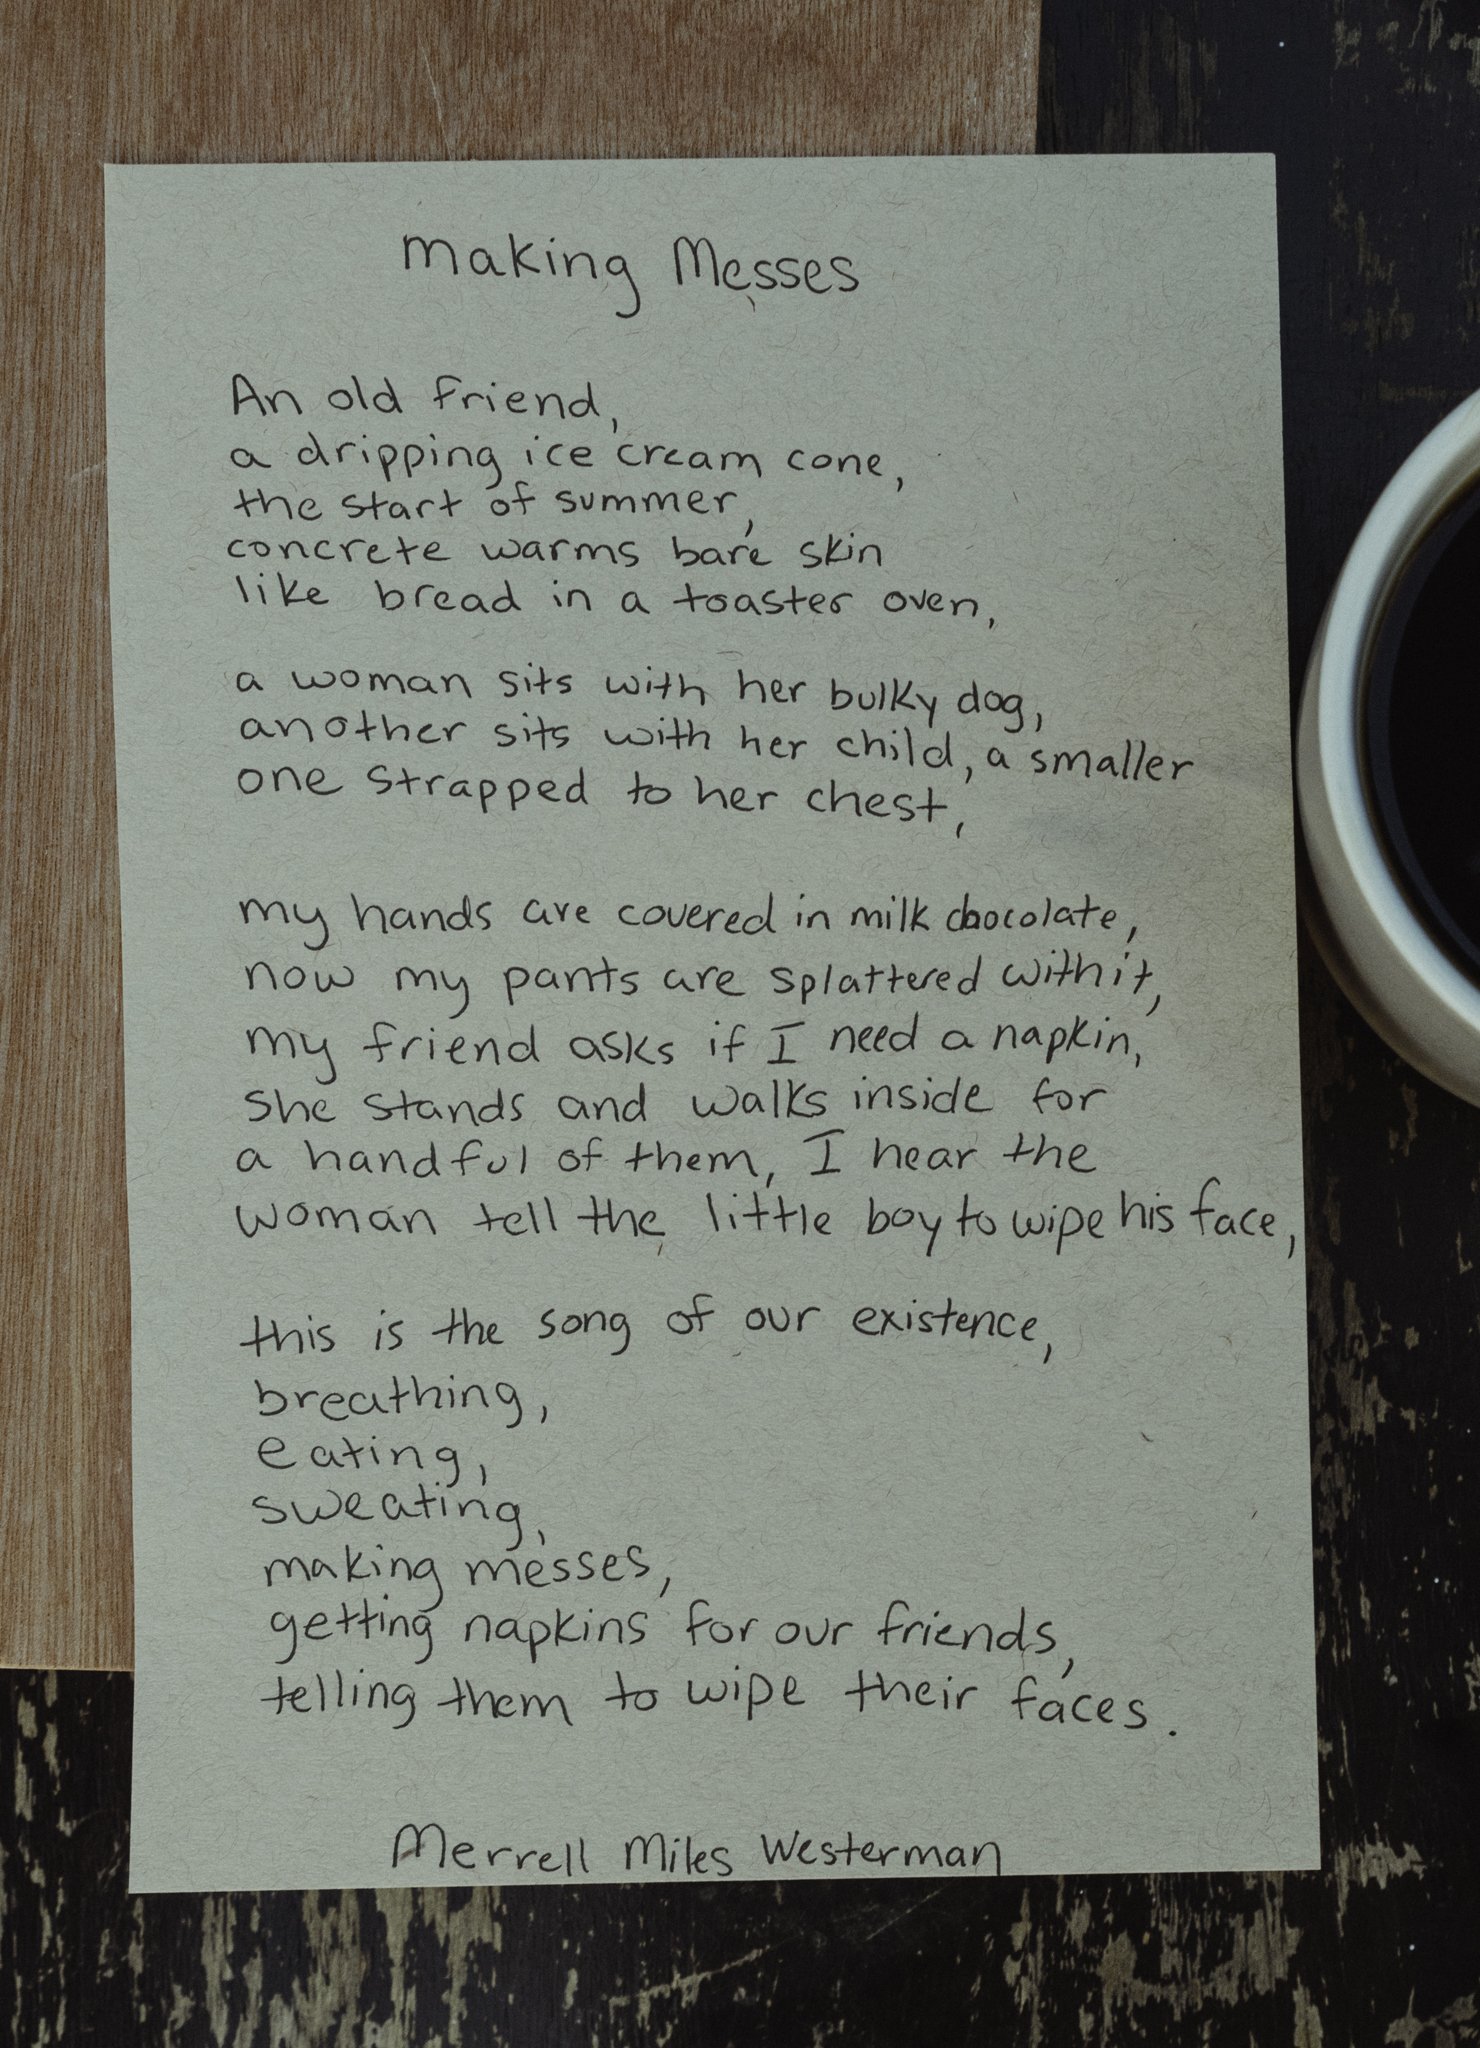 Making Messes
An old friend,
a dripping ice cream cone,
the start of summer,
concrete warms bare skin
like bread in a toaster oven,
a woman sits with her bulky dog,
another sits with her child, a smaller
one strapped to her chest,
my hands are covered in milk chocolate,
now my pants are splattered with it,
my friend asks if I need a napkin,
she stands and walks inside for
a handful of them, I hear the
woman tell the little boy to wipe his face,
this is the song of our existence,
breathing,
eating,
sweating,
making messes,
getting napkins for our friends,
telling them to wipe their faces.
Merrell Miles Westerman